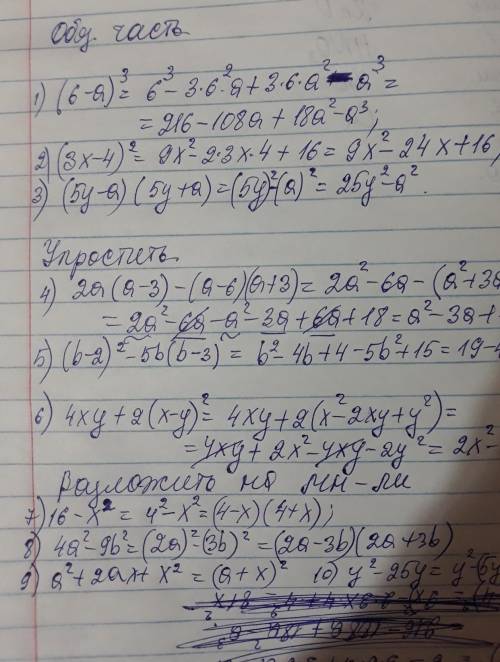 Общ. часть
1) (6-a)³ = 6³ - 3·6²a + 3·6·a² - a³ =
= 216 - 108a + 18a² - a³;
2) (3x-4)² = 9x² - 2·3x·4 + 16 = 9x² - 24x + 16,
3) (5y-a)(5y+a) = (5y)² - (a)² = 25y² - a².
Упростить
4) 2a(a-3) - (a-6)(a+3) = 2a² - 6a - (a² + 3a
= 2a² - 6a - a² - 3a + 6a + 18 = a² - 3a +
5) (b-2)² - 5b(b-3) = b² - 4b + 4 - 5b² + 15 = 19 - 4
6) 4xy + 2(x-y)² = 4xy + 2(x² - 2xy + y²) =
= 4xy + 2x² - 4xy - 2y² = 2x² -
Разложить на мн-ли
7) 16 - x² = 4² - x² = (4-x)(4+x);
8) 4a² - 9b² = (2a)² (3b)² = (2a-3b)(2a+3b)
9) a² + 2ax + x² = (a+x)² 10) y² - 25y = y² - (5y